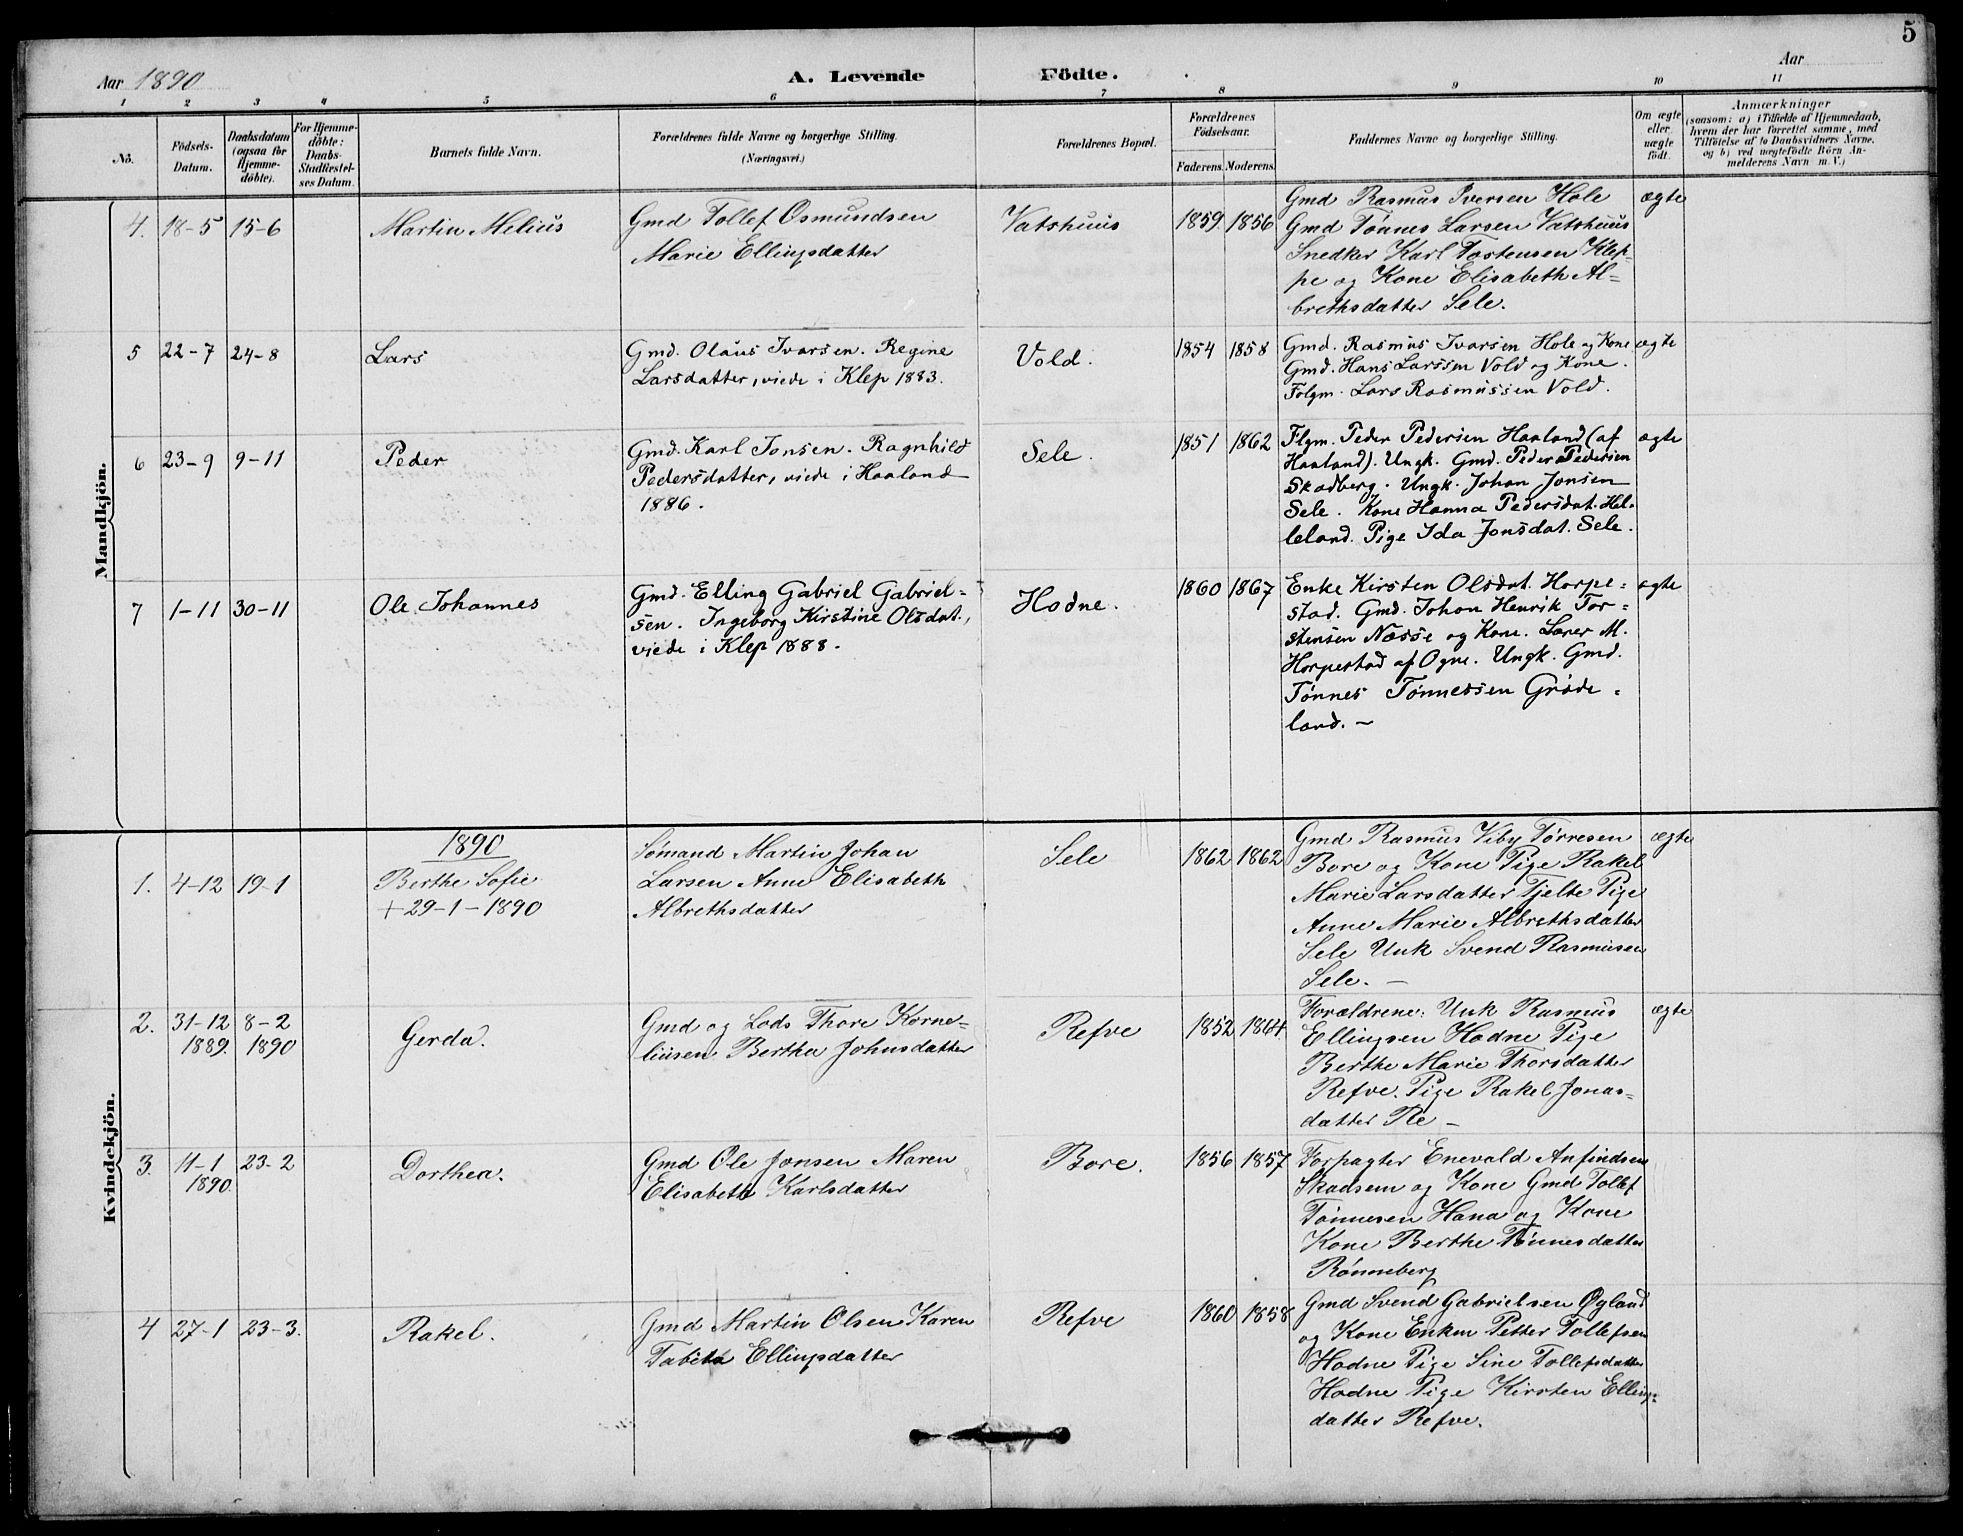 5
Aar 1890
A. Levende Födte.
Aar
1 2 3 4 5 6 7 8 9 10 11
No.
Födsels-
Datum.
Daabsdatum
(ogsaa for
Hjemme-
döbte).
For Hjemme-
döbte:
Daabs-
Stadfæstel-
ses Datum.
Barnets fulde Navn.
Forældrenes fulde Navne og borgerlige Stilling.
(Næringsvei.)
Forældrenes Bopæl.
Forældrenes
Födselsaar.
Faderens. Moderens.
Faddernes Navne og borgerlige Stilling.
Om ægte
eller
uægte
født.
Anmærkninger
(saasom: a) i Tilfælde af Hjemmedaab,
hvem der har forrettet samme, med
Tilføielse af to Daabsvidners Navne,
og b) ved uægtefödte Börn An-
melderens Navn m. V.)
Mandkjön.
4. 18-5 15-6
Martin Melius
Gmd Tollef Osmundsen
Marie Ellingsdatter
Vatshuus
1859. 1856
Gmd Rasmus Iversen Hole
Gmd Tønnes Larsen Vatshuus
Snedker Karl Tostensen Klep-
pe og Kone Elisabeth Al-
brethsdatter Sele.
ægte
5 22-7 24-8
Lars
Gmd. Olaus Ivarsen. Regine
Larsdatter, viede i Klep 1883.
Vold.
1854 1858
Gmd. Rasmus Ivarsen Hole og Kone
Gmd. Hans Larssen Vold og Kone.
Folgm. Lars Rasmussen Vold.
ægte
6 23-9 9-11
Peder
Gmd. Karl Jonsen. Ragnhild
Pedersdatter, viede i Haaland
1886.
Sele.
1851 1862
Flgm. Peder Pedersen Haaland (af
Haaland). Ungk. Gmd. Peder Pedersen
Skadberg. Ungk. Johan Jonsen
Sele. Kone Hanna Pedersdat. Hel-
leland. Pige Ida Jonsdat. Sele.
ægte
7 1-11 30-11
Ole Johannes
Gmd. Elling Gabriel Gabriel=
sen. Ingeborg Kirstine Olsdat.,
viede i Klep 1888.
Hodne.
1860 1867
Enke Kirsten Olsdat. Horpe=
stad. Gmd. Johan Henrik Tor=
stensen Næsse og Kone. Lærer M.
Horpestad af Ogne. Ungk. Gmd.
Tønnes Tønnessen Grøde=
land. -
ægte
Kvindekjön.
1890
1. 4-12 19-1
Berthe Sofie
+ 29-1-1890
Sømand Martin Johan
Larsen Anne Elisabeth
Albrethsdatter
Sele
1862 1862
Gmd Rasmus Viby Tørresen
Bore og Kone Pige Rakel
Marie Larsdatter Tjelte Pige
Anne Marie Albrethsdatter
Sele Unk Svend Rasmusen
Sele. -
ægte
2. 31-12 8-2
1889. 1890
Gerda.
Gmd og Lods Thore Korne-
liusen Bertha Johnsdatter
Refve
1852 1864
Forældrene: Unk Rasmus
Ellingsen Hodne Pige
Berthe Marie Thorsdatter
Refve. Pige Rakel Jonas-
datter Re -
ægte
3. 11-1 23-2
1890.
Dorthea.
Gmd Ole Jonsen Maren
Elisabeth Karlsdatter
Bore.
1856 1857
Forpagter Enevald Anfindsen
Skadsem og Kone Gmd Tollef
Tønnesen Hana og Kone
Kone Berthe Tønnesdatter
Rønneberg
4 27-1 23-3.
Rakel.
Gmd Martin Olsen Karen
Tabita Ellingsdatter
Refve
1860 1858
Gmd Svend Gabrielsen Øgland
og Kone Enkm Petter Tollefsen
Hodne Pige Sine Tollefsdatter
Hodne Pige Kirsten Elling-
datter Refve.